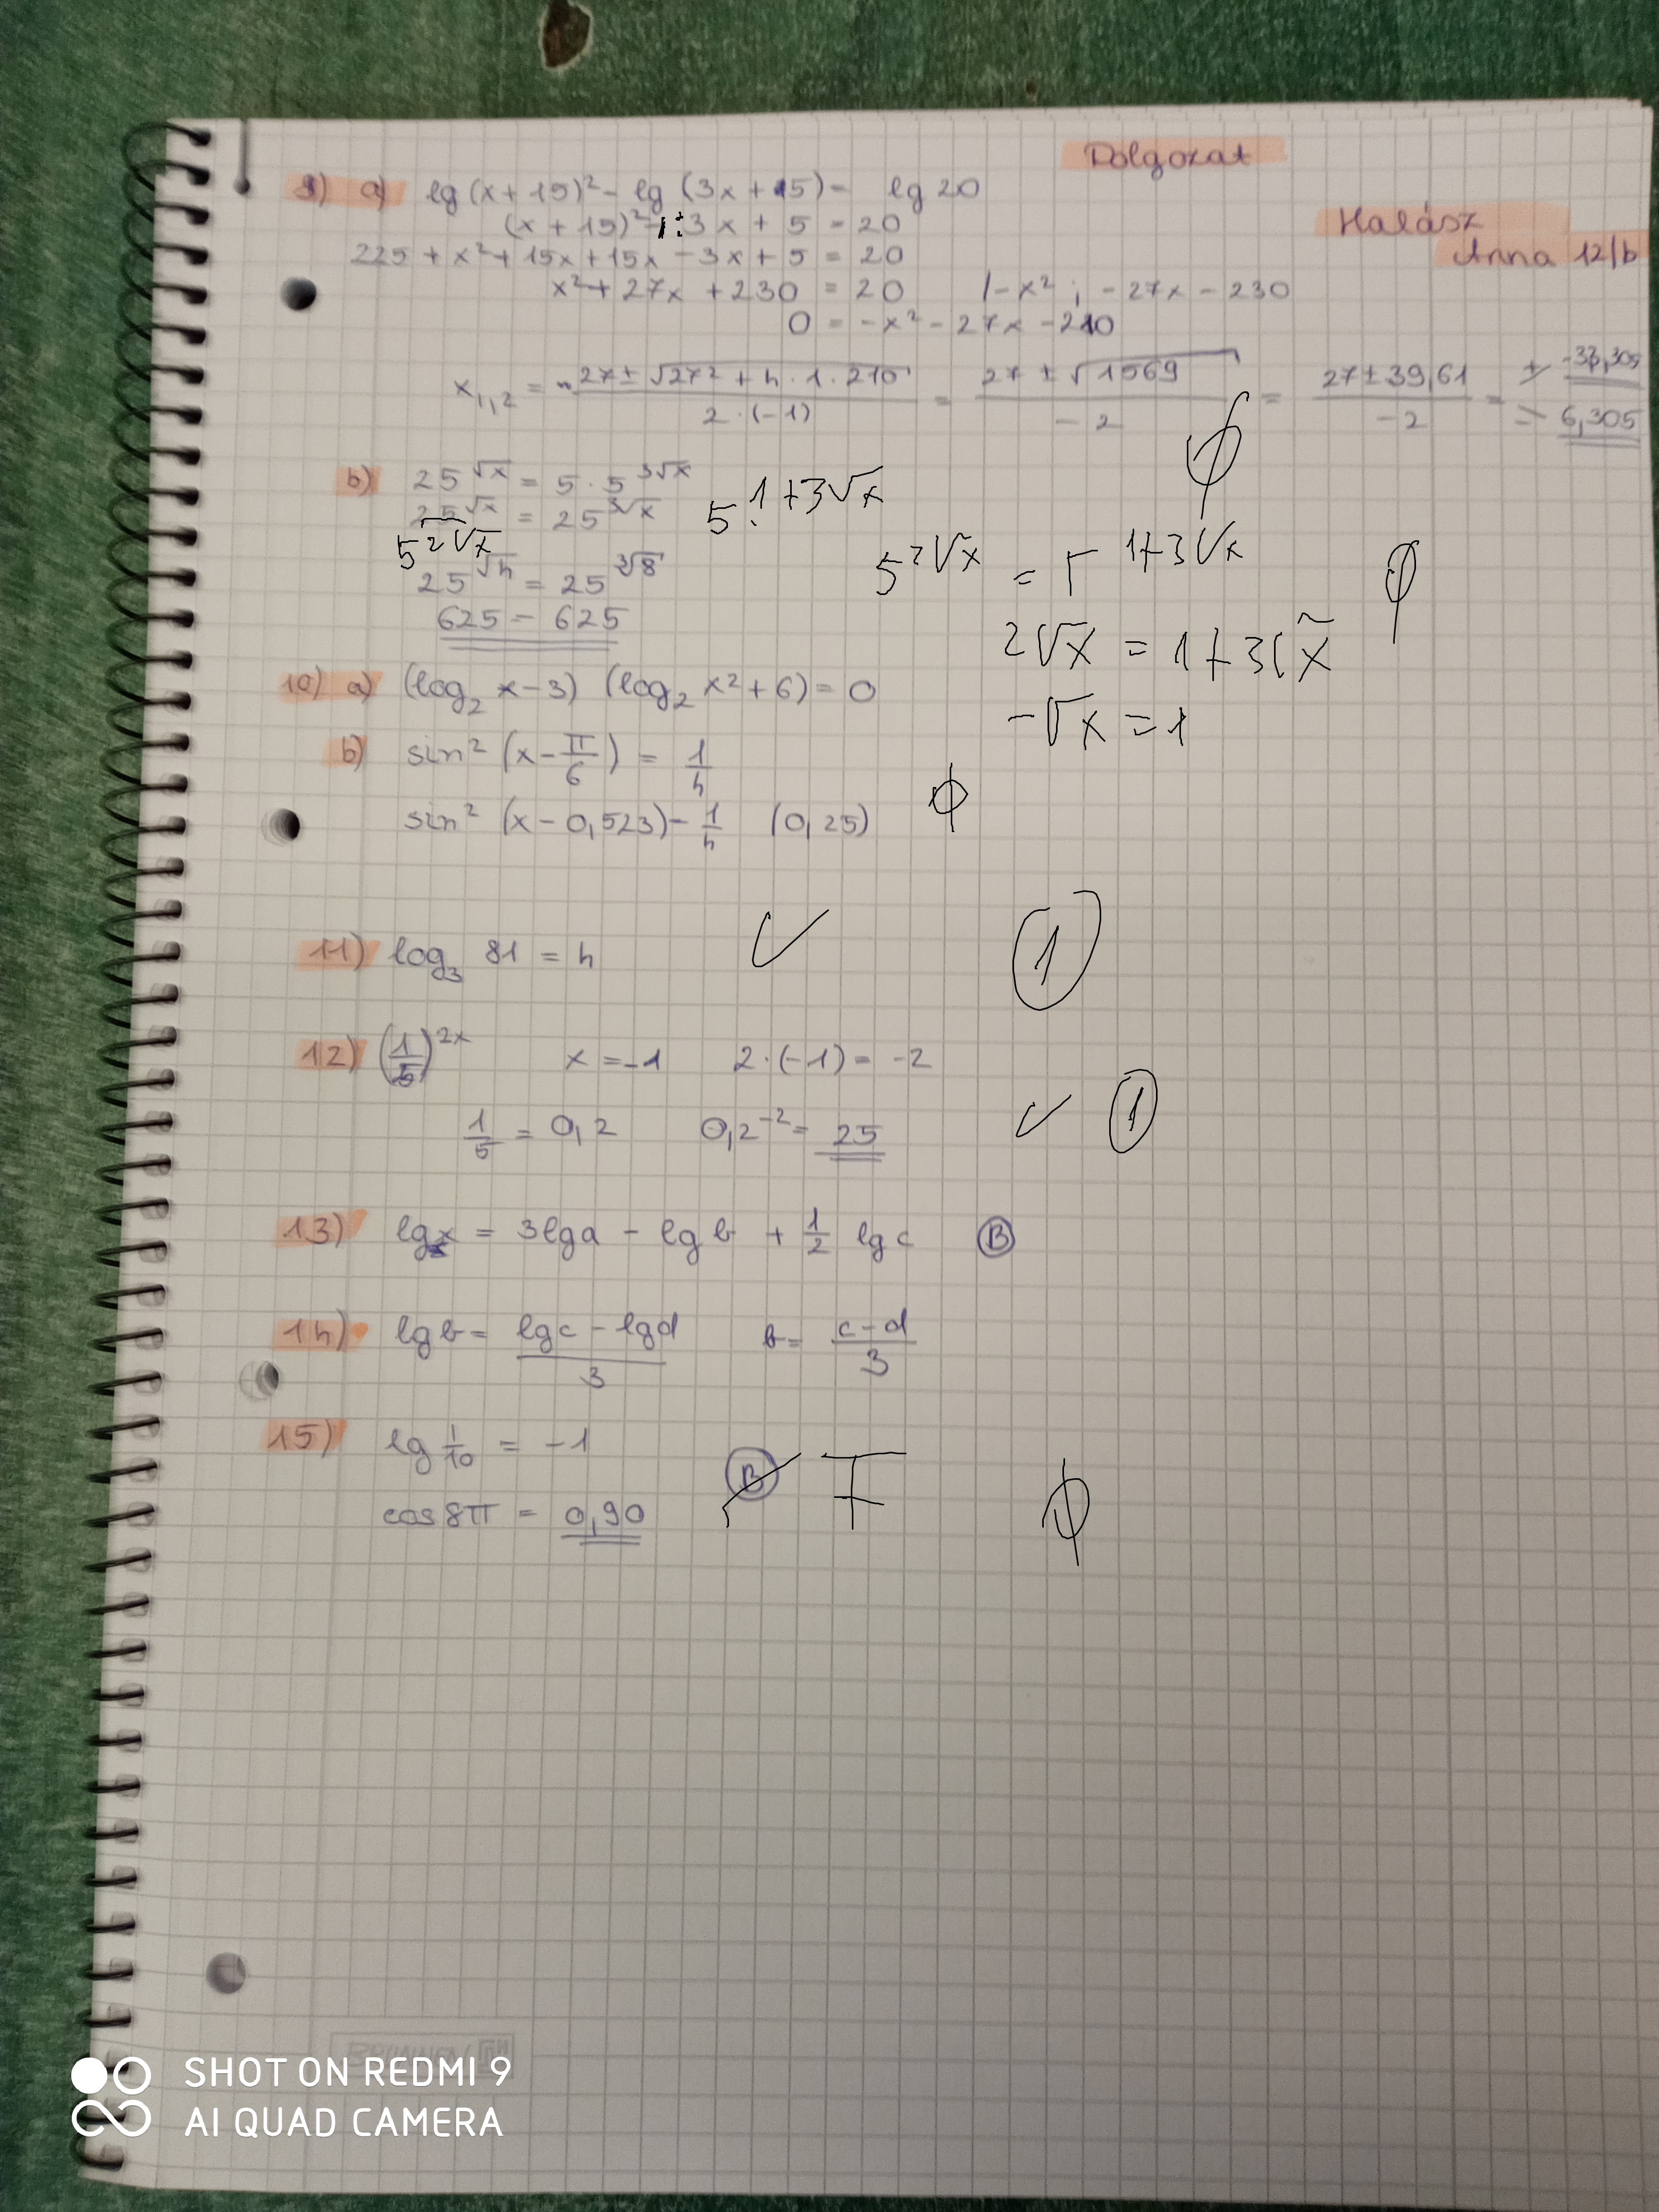 Dolgozat
Halász
Anna 12/b
9) a) lg (x + 15)² - lg (3x + 5) = lg 20
(x + 15)² : 3x + 5 = 20
225 + x² + 15x + 15x - 3x + 5 = 20
x² + 27x + 230 = 20 /-x² ; -27x - 230
0 = -x² - 27x - 210
x₁,₂ = 27 ± √27² + 4 · 1 · 210 / 2 · (-1) = 27 ± √1569 / -2 = 27 ± 39,61 / -2 = -33,305
6,305
φ
b) 25^√x = 5 · 5^3√x
25^√x = 25^3√x 5^1+3√x
5^2√x
25^√4 = 25^3√8
625 = 625
5^2√x = 5^1+3√x φ
2√x = 1 + 3√x
-√x = 1
10) a) (log₂ x - 3) (log₂ x² + 6) = 0
b) sin² (x - π/6) = 1/4
sin² (x - 0,523) - 1/4 (0,25) φ
11) log₃ 81 = 4 ✓ 1
12) (1/5)^2x x = -1 2 · (-1) = -2
1/5 = 0,2 0,2^-2 = 25 ✓ 1
13) lg x = 3 lg a - lg b + 1/2 lg c B
14) lg b = lg c - lg d / 3 b = c - d / 3
15) lg 1/10 = -1
B I φ
cos 8π = 0,90
SHOT ON REDMI 9
AI QUAD CAMERA